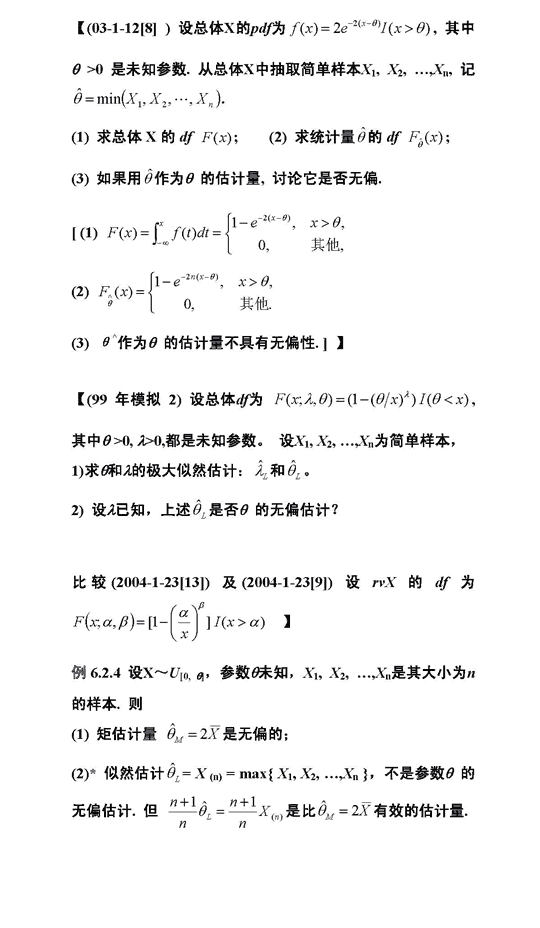 【(03-1-12[8] ) 设总体X的pdf为 f(x)=2e^{-2(x-θ)}I(x>θ), 其中
θ >0 是未知参数. 从总体X中抽取简单样本X₁, X₂, …,Xₙ, 记
θ̂=min(X₁, X₂,⋯, Xₙ).
(1) 求总体 X 的 df F(x); (2) 求统计量θ̂的 df F_θ̂(x);
(3) 如果用θ̂作为θ 的估计量, 讨论它是否无偏.
[ (1) F(x)=∫_{-∞}^{x} f(t)dt={1-e^{-2(x-θ)}, x>θ, 0, 其他,
(2) F_θ̂(x)={1-e^{-2n(x-θ)}, x>θ, 0, 其他.
(3) θ^作为θ 的估计量不具有无偏性. ] 】
【(99 年模拟 2) 设总体df为 F(x;λ,θ)=(1-(θ/x)^λ) I(θ<x),
其中θ>0, λ>0,都是未知参数。 设X₁, X₂, …,Xₙ为简单样本,
1)求θ和λ的极大似然估计: λ̂_L 和θ̂_L 。
2) 设λ已知, 上述θ̂_L是否θ 的无偏估计?
比 较 (2004-1-23[13]) 及 (2004-1-23[9]) 设 rvX 的 df 为
F(x;α,β)=[1-(α/x)^β] I(x>α) 】
例 6.2.4 设X～U_{[0, θ]}, 参数θ未知, X₁, X₂, …,Xₙ是其大小为n
的样本. 则
(1) 矩估计量 θ̂_M = 2X̄ 是无偏的;
(2)* 似然估计θ̂_L= X ₍ₙ₎ = max{ X₁, X₂, …,Xₙ }, 不是参数θ 的
无偏估计. 但 \frac{n+1}{n}θ̂_L = \frac{n+1}{n}X₍ₙ₎ 是比θ̂_M = 2X̄ 有效的估计量.